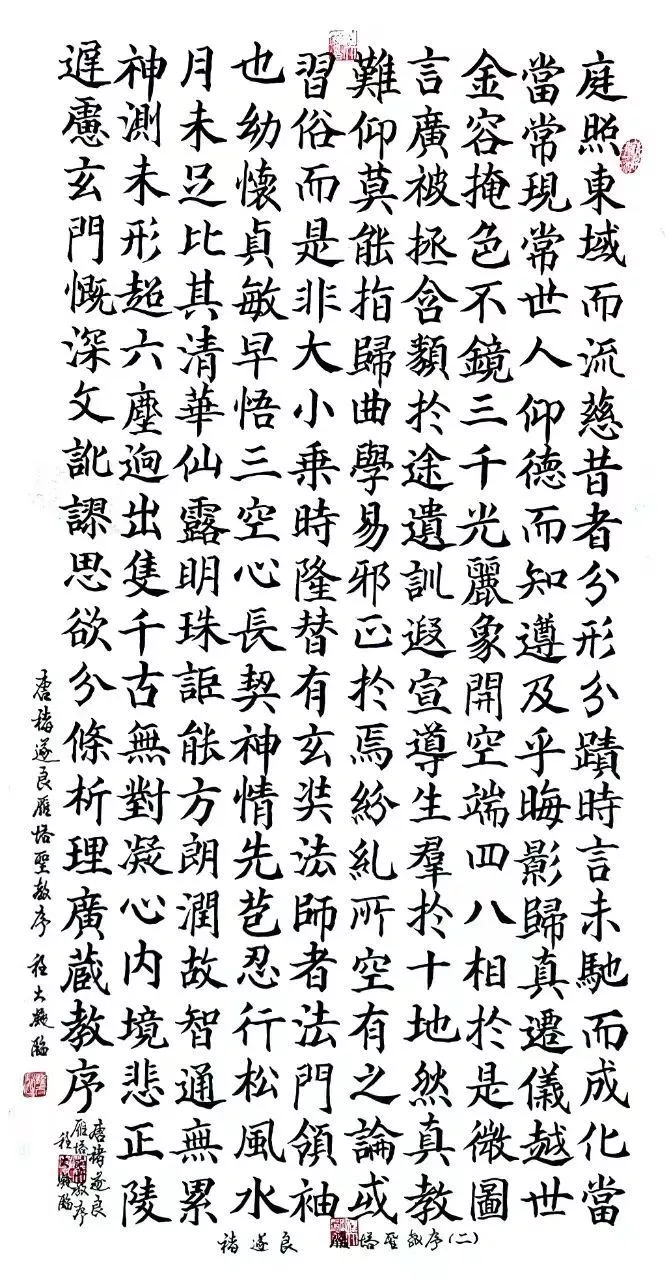 庭照東域而流慈昔者分形分蹟時言未馳而成化當
當常現常世人仰德而知遵及乎晦影歸真遷儀越世
金容掩色不鏡三千光麗象開空端四八相於是微圖
言廣被拯含類於途遺訓遐宣導生羣於十地然真教
難仰莫能指歸曲學易邪正於焉紛糺所空有之論或
習俗而是非大小乘時隆替有玄奘法師者法門領袖
也幼懷貞敏早悟三空心長契神情先苞忍行松風水
月未足比其清華仙露明珠詎能方朗潤故智通無累
神測未形超六塵迥出隻千古無對凝心內境悲正陵
遲慮玄門慨深文訛謬思欲分條析理廣蔵教序
唐褚遂良雁塔聖教序 程大臨
唐褚遂良
雁塔教序
程大臨
褚遂良 塔聖教序(二)